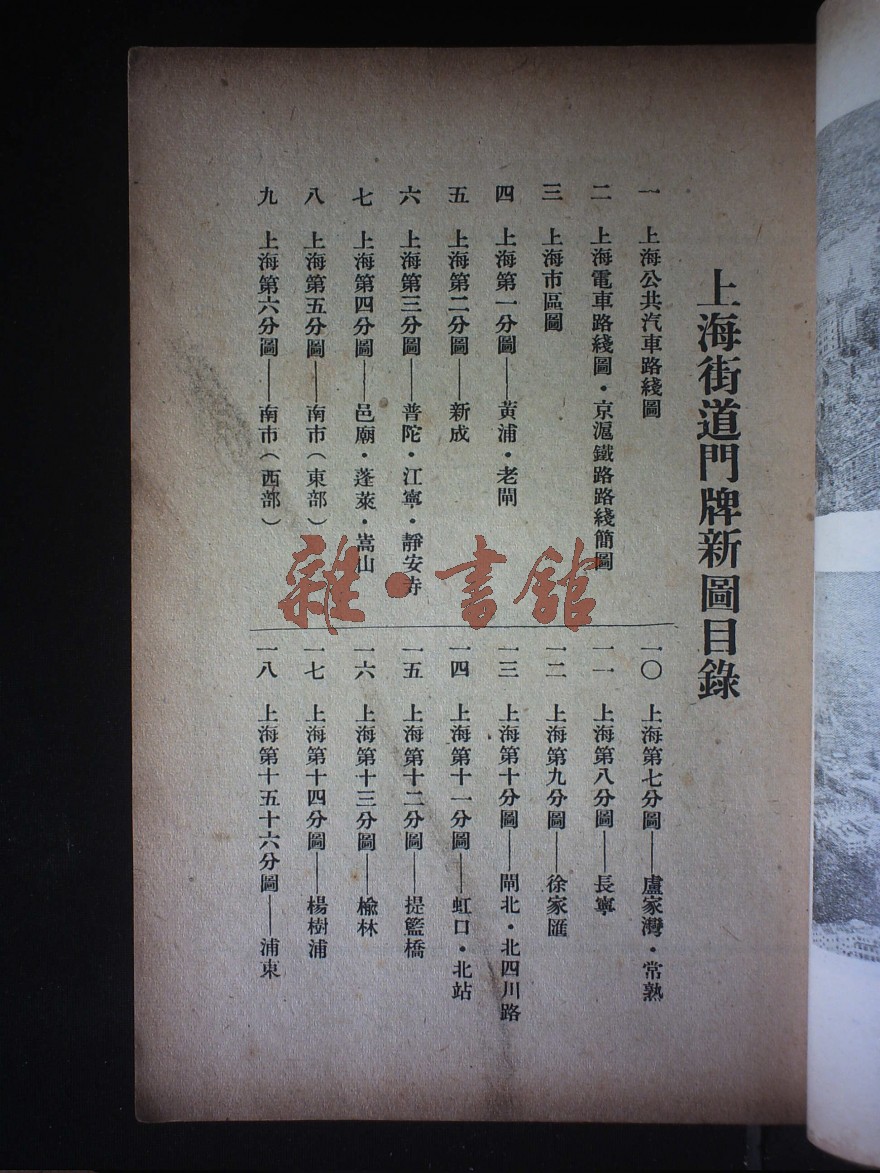 上海街道門牌新圖目錄
一 上海公共汽車路綫圖
二 上海電車路綫圖·京滬鐵路路綫簡圖
三 上海市區圖
四 上海第一分圖——黃浦·老閘
五 上海第二分圖——新成
六 上海第三分圖——普陀·江寧·靜安寺
七 上海第四分圖——邑廟·蓬萊·嵩山
八 上海第五分圖——南市（東部）
九 上海第六分圖——南市（西部）
一〇 上海第七分圖——盧家灣·常熟
一一 上海第八分圖——長寧
一二 上海第九分圖——徐家匯
一三 上海第十分圖——閘北·北四川路
一四 上海第十一分圖——虹口·北站
一五 上海第十二分圖——提籃橋
一六 上海第十三分圖——榆林
一七 上海第十四分圖——楊樹浦
一八 上海第十五十六分圖——浦東
雜·書館